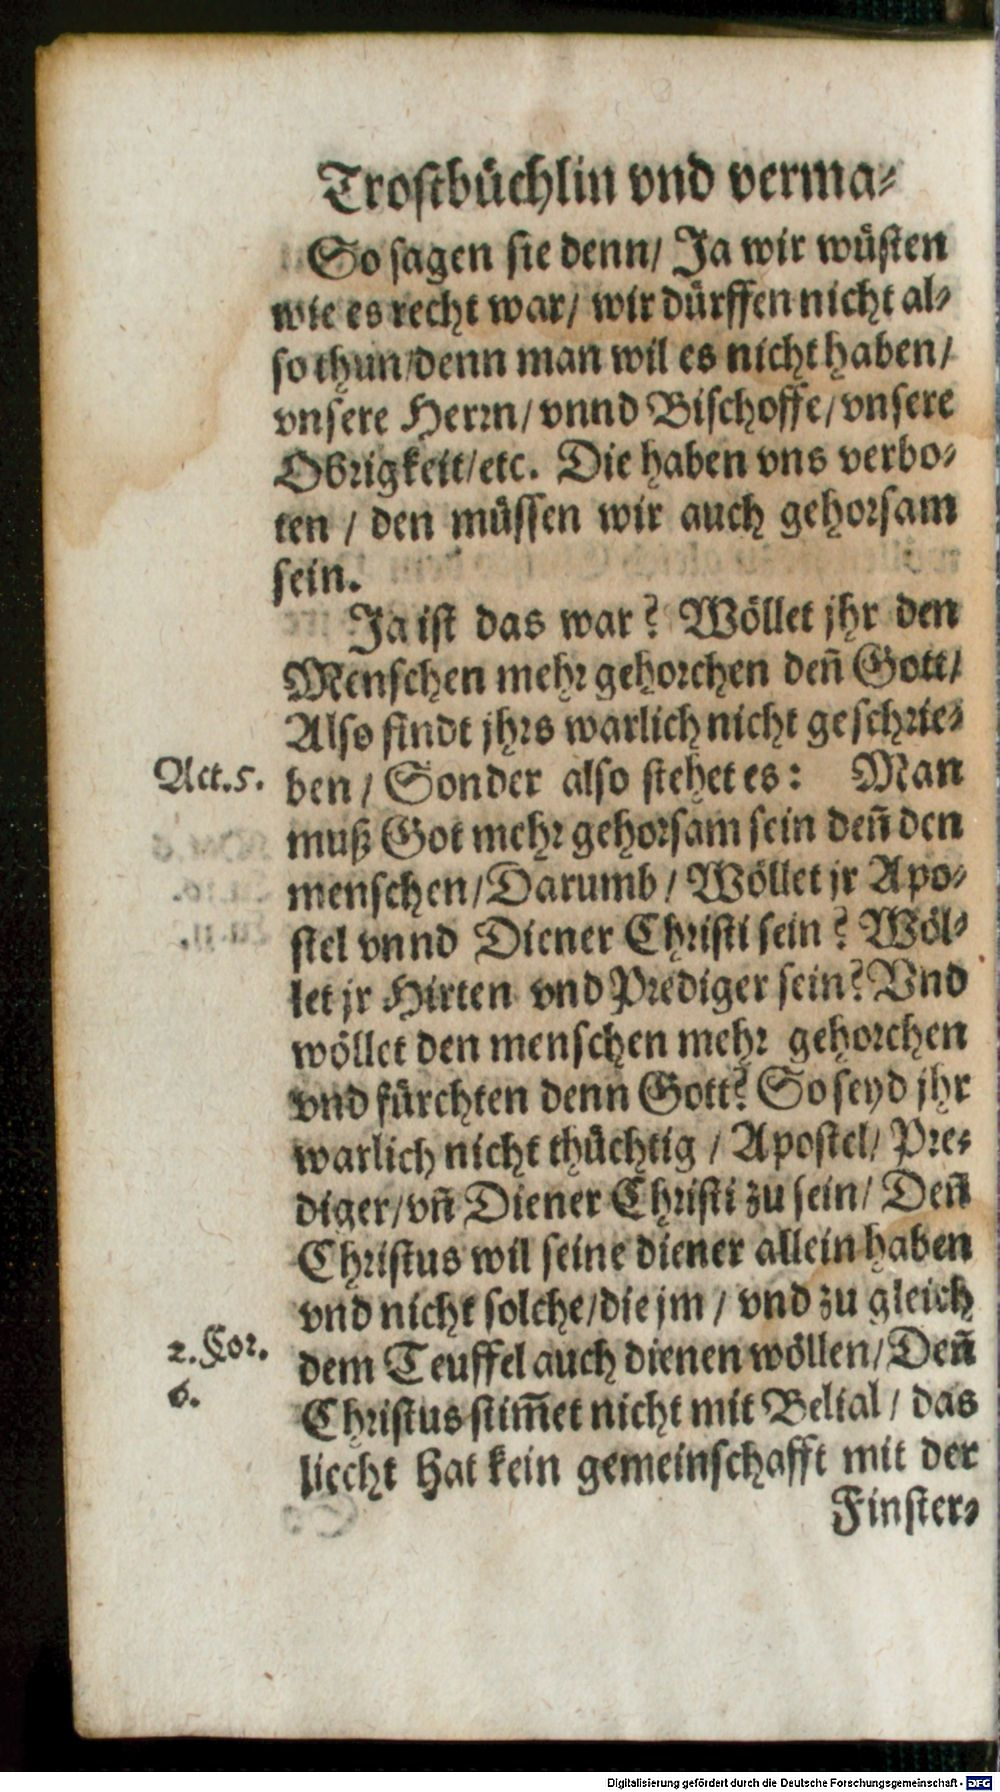 Trostbüchlin vnd verma⸗
So sagen sie denn/ Ja wir wüsten
wie es recht war/ wir dürffen nicht al⸗
so thun/denn man wil es nicht haben/
vnsere Herrn/ vnnd Bischoffe/ vnsere
Obrigkeit/etc. Die haben vns verbo⸗
ten / den müssen wir auch gehorsam
sein.
Ja ist das war? Wöllet jhr den
Menschen mehr gehorchen deñ Gott/
Also findt jhrs warlich nicht geschrie⸗
Act.5.
ben / Sonder also stehet es: Man
muß Got mehr gehorsam sein deñ den
menschen/Darumb / Wöllet jr Apo⸗
stel vnnd Diener Christi sein? Wöl⸗
let jr Hirten vnd Prediger sein? Vnd
wöllet den menschen mehr gehorchen
vnd fürchten denn Gott? So seyd jhr
warlich nicht thüchtig / Apostel/ Pre⸗
diger/vñ Diener Christi zu sein/ Deñ
Christus wil seine diener allein haben
vnd nicht solche/die jm / vnd zu gleich
2. Cor.
6.
dem Teuffel auch dienen wöllen/Deñ
Christus stim̃et nicht mit Belial / das
liecht hat kein gemeinschafft mit der
Finster⸗
Digitalisierung gefördert durch die Deutsche Forschungsgemeinschaft - DFG